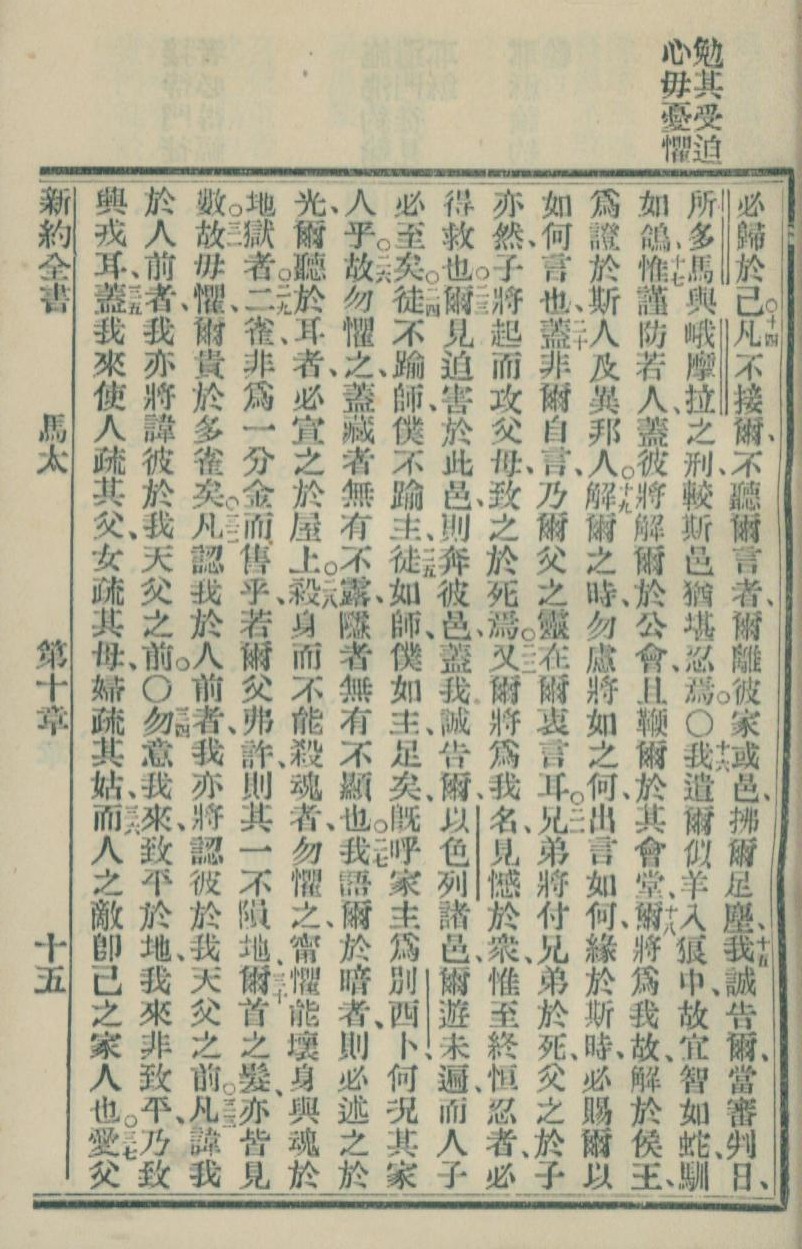 勉其受迫
心毋憂懼
必歸於己。十四凡不接爾、不聽爾言者、爾離彼家或邑、拂爾足塵、十五我誠告爾、當審判日、
所多馬與峨摩拉之刑、較斯邑猶堪忍焉。〇十六我遣爾似羊入狼中、故宜智如蛇、馴
如鴿、十七惟謹防若人、蓋彼將解爾於公會、且鞭爾於其會堂、十八爾將爲我故、解於侯王、
爲證於斯人及異邦人。十九解爾之時、勿慮將如之何、出言如何、緣於斯時、必賜爾以
如何言也、二十蓋非爾自言、乃爾父之靈在爾衷言耳。二一兄弟將付兄弟於死、父之於子
亦然、子將起而攻父母、致之於死焉。二二又爾將爲我名、見憾於衆、惟至終恒忍者、必
得救也。二三爾見迫害於此邑、則奔彼邑、蓋我誠告爾、以色列諸邑、爾遊未遍、而人子
必至矣。二四徒不踰師、僕不踰主、二五徒如師、僕如主、足矣、旣呼家主爲別西卜、何况其家
人乎。二六故勿懼之、蓋藏者無有不露、隱者無有不顯也。二七我語爾於暗者、則必述之於
光、爾聽於耳者、必宣之於屋上。二八殺身而不能殺魂者、勿懼之、甯懼能壞身與魂於
地獄者。二九二雀、非爲一分金而售乎、若爾父弗許、則其一不隕地、三十爾首之髮、亦皆見
數。三一故毋懼、爾貴於多雀矣。三二凡認我於人前者、我亦將認彼於我天父之前。三三凡諱我
於人前者、我亦將諱彼於我天父之前。〇三四勿意我來、致平於地、我來非致平、乃致
興戎耳、三五蓋我來使人疏其父、女疏其母、婦疏其姑、三六而人之敵卽己之家人也。三七愛父
新約全書 馬太 第十章 十五